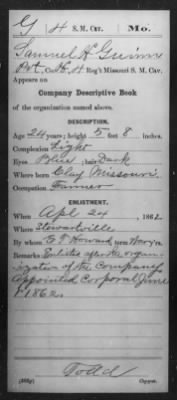 G 4 S. M. Cav. Mo.
Samuel H Guinn
Pvt, Co. H, 4 Reg't Missouri S. M. Cav.
Appears on
Company Descriptive Book
of the organization named above.
DESCRIPTION.
Age 24 years; height 5 feet 8 inches.
Complexion Light
Eyes Blue; hair Dark
Where born Clay Missouri.
Occupation Farmer
ENLISTMENT.
When Apl 24, 1862.
Where Stewartsville
By whom E T Howard; term War; y'rs.
Remarks Enlisted after the organ-
ization of the Company
Appointed Corporal June
1 1862.
Todd
Copyist.